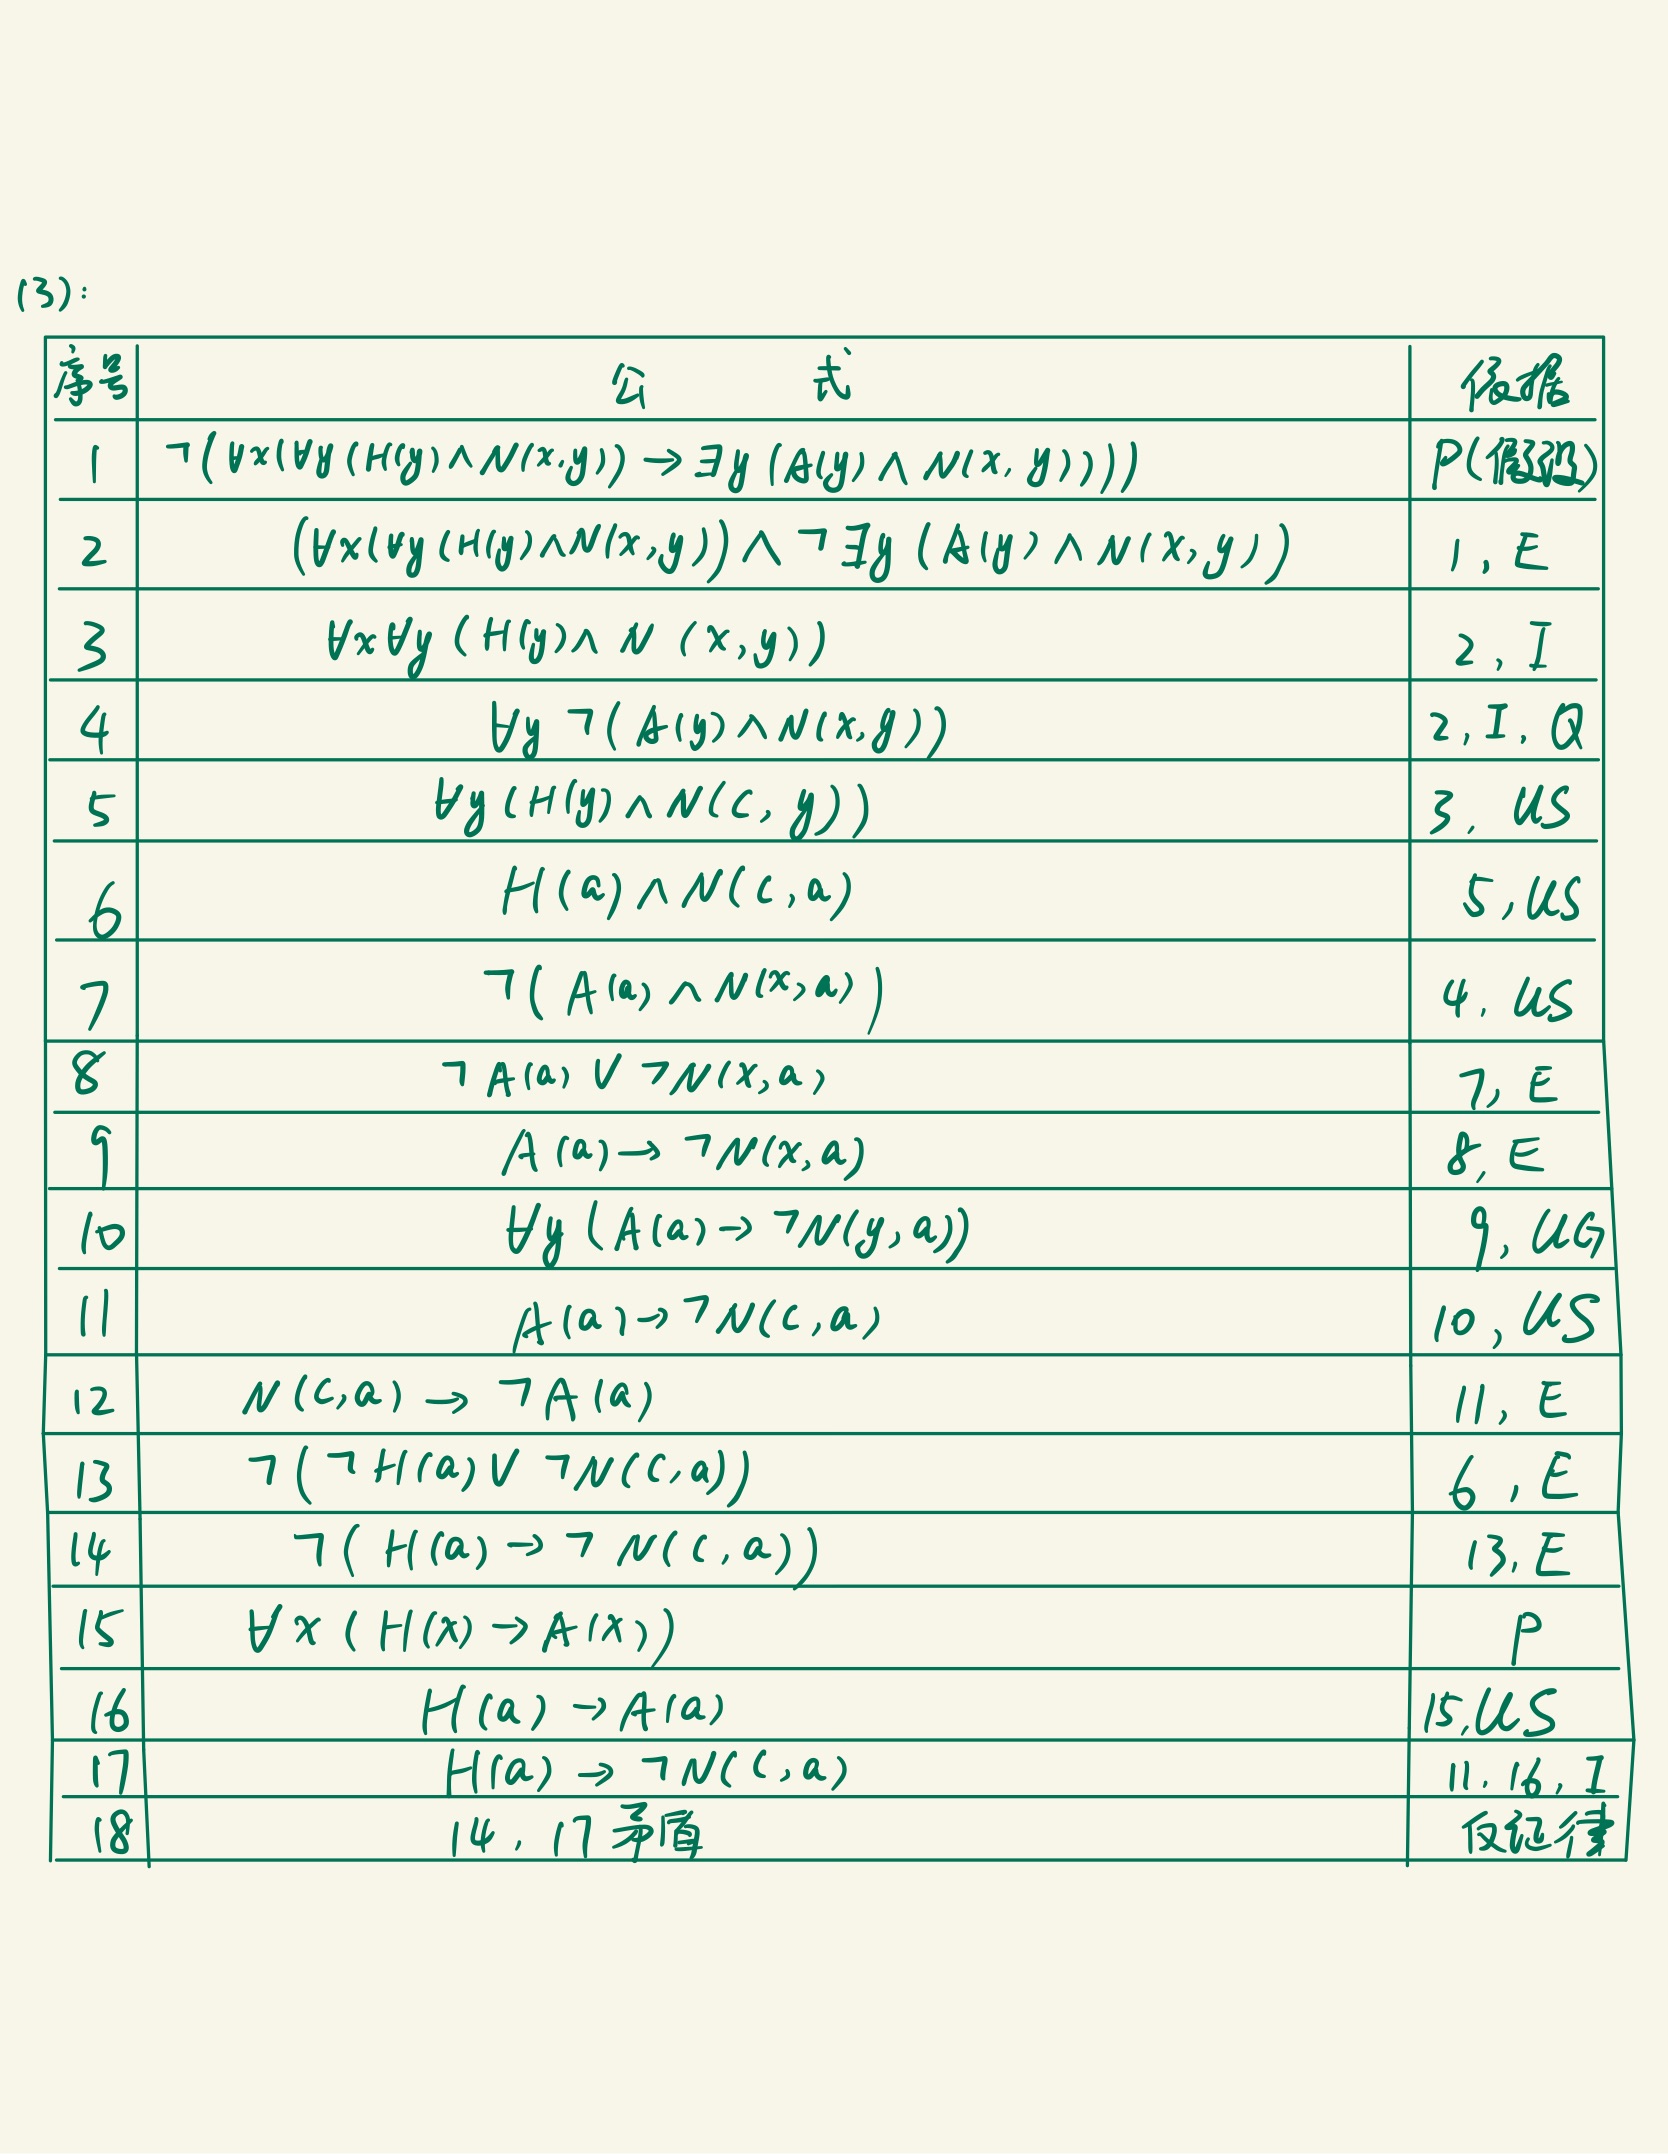 (3):
序号 公式 依据
1 ¬(∀x(∀y(H(y)∧N(x,y))→∃y(A(y)∧N(x,y))))) P(假设)
2 (∀x(∀y(H(y)∧N(x,y)))∧¬∃y(A(y)∧N(x,y))) 1, E
3 ∀x∀y(H(y)∧N(x,y)) 2, I
4 ∀y¬(A(y)∧N(x,y)) 2, I, Q
5 ∀y(H(y)∧N(c,y)) 3, US
6 H(a)∧N(c,a) 5, US
7 ¬(A(a)∧N(x,a)) 4, US
8 ¬A(a)∨¬N(x,a) 7, E
9 A(a)→¬N(x,a) 8, E
10 ∀y(A(a)→¬N(y,a)) 9, UG
11 A(a)→¬N(c,a) 10, US
12 N(c,a)→¬A(a) 11, E
13 ¬(¬H(a)∨¬N(c,a)) 6, E
14 ¬(H(a)→¬N(c,a)) 13, E
15 ∀x(H(x)→A(x)) P
16 H(a)→A(a) 15, US
17 H(a)→¬N(c,a) 11, 16, I
18 14, 17矛盾 反证律